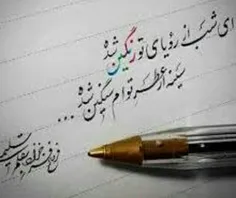 ای شب از رؤیای تو رنگین شده
سینه از عطر توام سنگین شده ...
فروغ فرخزاد